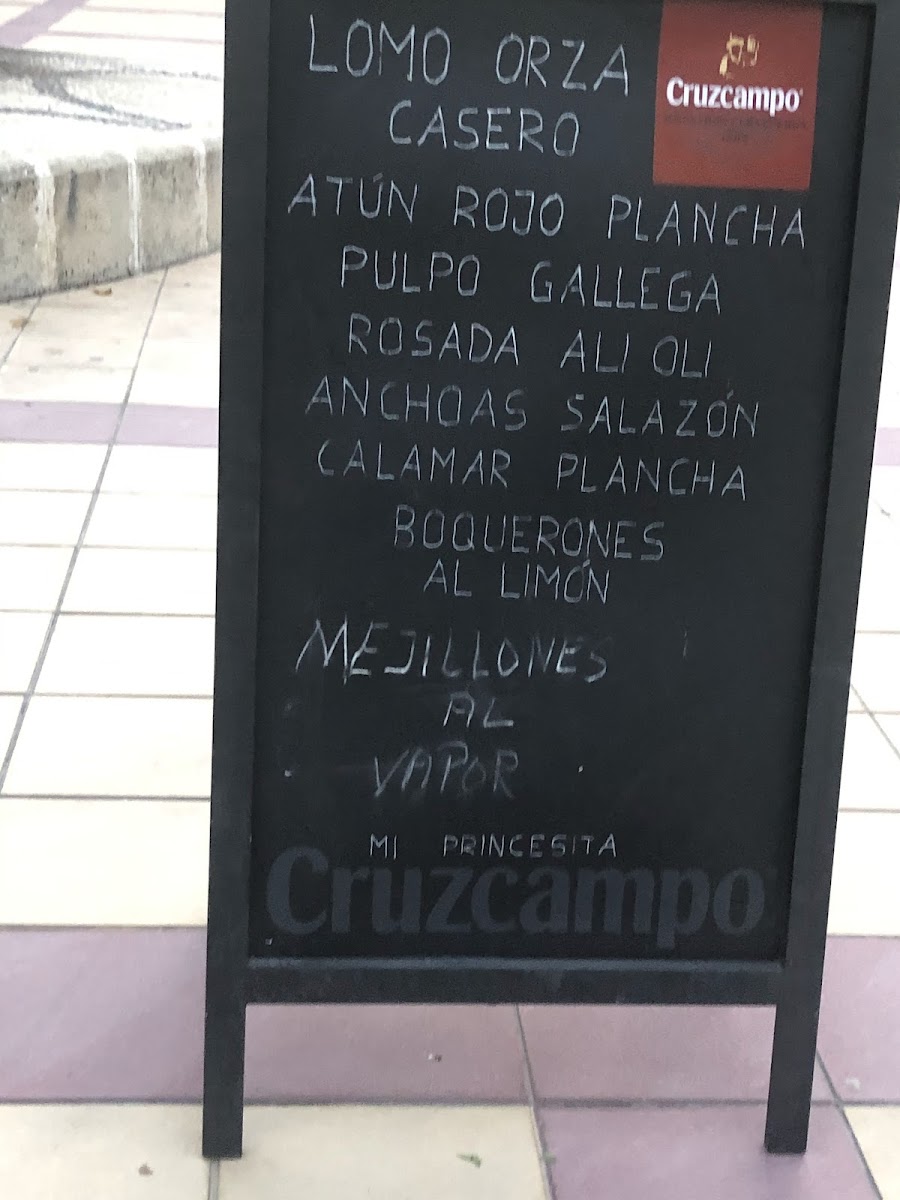 LOMO ORZA
CASERO
Cruzcampo
ATÚN ROJO PLANCHA
PULPO GALLEGA
ROSADA ALI OLI
ANCHOAS SALAZÓN
CALAMAR PLANCHA
BOQUERONES
AL LIMÓN
MEJILLONES
AL
VAPOR
MI PRINCESITA
Cruzcampo